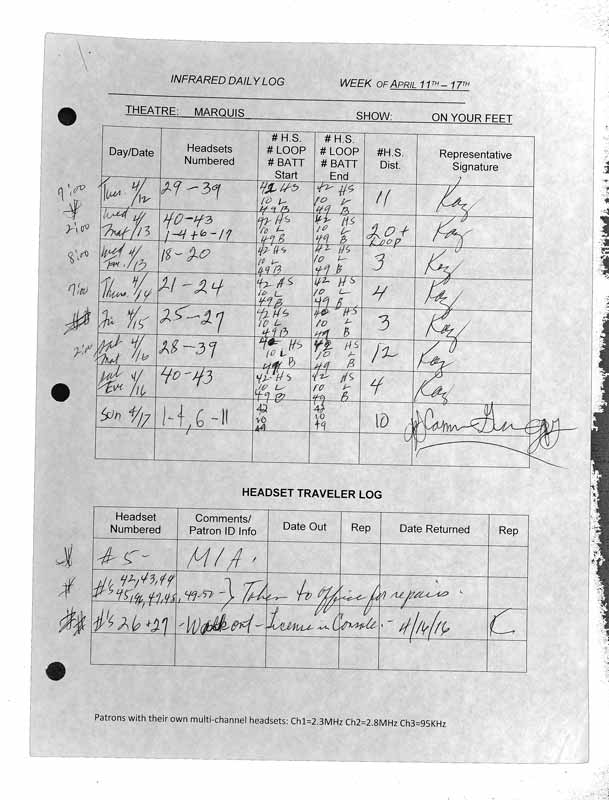 INFRARED DAILY LOG WEEK OF APRIL 11TH – 17TH
THEATRE: MARQUIS SHOW: ON YOUR FEET
Day/Date Headsets Numbered # H.S. # LOOP # BATT Start # H.S. # LOOP # BATT End #H.S. Dist. Representative Signature
7:00 Tues. 4/12 29-39 42 HS 10 L 49 B 42 HS 10 L 49 B 11 Kay
* 2:00 Wed Mat 4/13 40-43 1-4+6-17 42 HS 10 L 49 B 42 HS 10 L 49 B 20+ Loop Kay
8:00 Wed Eve. 4/13 18-20 42 HS 10 L 49 B 42 HS 10 L 49 B 3 Kay
7:00 Thurs. 4/14 21-24 42 HS 10 L 49 B 42 HS 10 L 49 B 4 Kay
## Fri 4/15 25-27 42 HS 10 L 49 B HS 10 L 49 B 3 Kay
2:00 Sat Mat 4/16 28-39 HS 10 L 49 B HS 10 L B 12 Kay
Sat Eve 4/16 40-43 42 HS 10 L 49 B 42 HS 10 L 49 B 4 Kay
Sun 4/17 1-4, 6-11 42 10 49 10 49 10
HEADSET TRAVELER LOG
Headset Numbered Comments/ Patron ID Info Date Out Rep Date Returned Rep
* #5- MIA.
# #'s 42,43,44 45,46,47,48,49-52 } Taken to office for repairs.
## #'s 26+27 - Walk out - License in Console. - 4/16/16 K
Patrons with their own multi-channel headsets: Ch1=2.3MHz Ch2=2.8MHz Ch3=95KHz